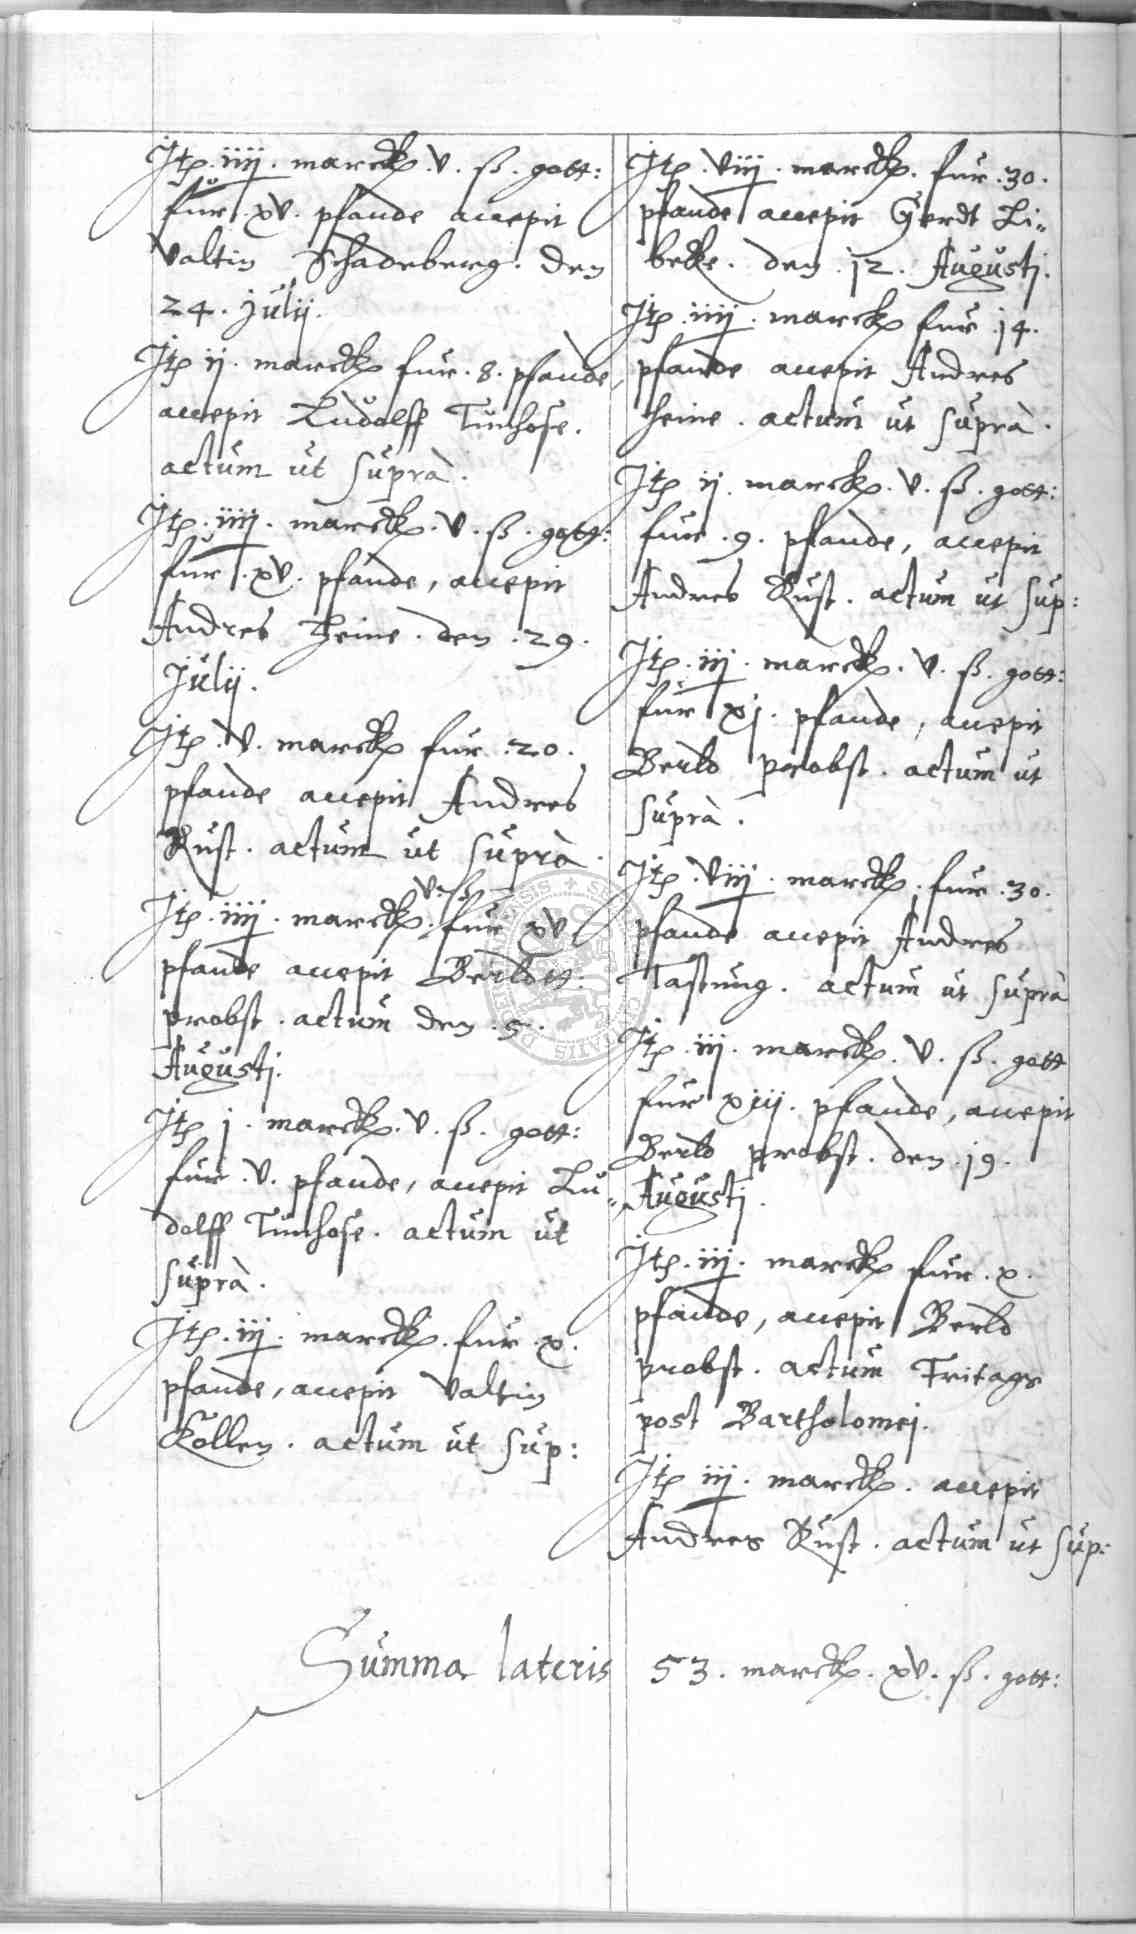 Jtp. iiij. marck. v. ß. gott:
für. xv. pfande accepit
Valtin Schadeberg. den
24. Julij.
Jtp ij. marck für. 8. pfande,
accepit Ludolff Tünhose.
actum ut suprà.
Jtp. iiij. marck. v. ß. gott:
für. xv. pfande, accepit
Andres Heine. den. 29.
Julij.
Jtp. v. marck für. 20.
pfande accepit Andres
Rust. actum ut suprà.
v. ß
Jtp. iiij. marck. für xv
pfande accepit Berldtt:
probst. actum den. 5.
Augustj.
Jtp j. marck. v. ß. gott:
für. v. pfande, accepit Lu„
dolff Tünhose. actum ut
suprà.
Jtp. iij. marck. für. x.
pfande, accepit Valtin
Kollen. actum ut sup:
Jtp. viij. marck. für. 30.
pfande accepit Gerdt Li„
becke. den. 12. Augustj.
Jtp. iiij. marck für. 14.
pfande accepit Andres
Heine. actum ut suprà.
Jtp ij. marck. v. ß. gott:
für. 9. pfande, accepit
Andres Rust. actum ut sup:
Jtp. iij. marck. v. ß. gott:
für xj. pfande, accepit
Berld probst. actum ut
suprà.
Jtp. viij. marck. für. 30.
pfande accepit Andres
Tastung. actum ut suprà
Jtp. iij. marck. v. ß. gott
für xiij. pfande, accepit
Berld probst. den. 19.
Augustj.
Jtp. iij. marck für. x.
pfande, accepit Berld
probst. actum Fritags
post Bartholomej.
Jtp iij. marck. accepit
Andres Rust. actum ut sup:
Summa lateris 53. marck. xv. ß. gott: